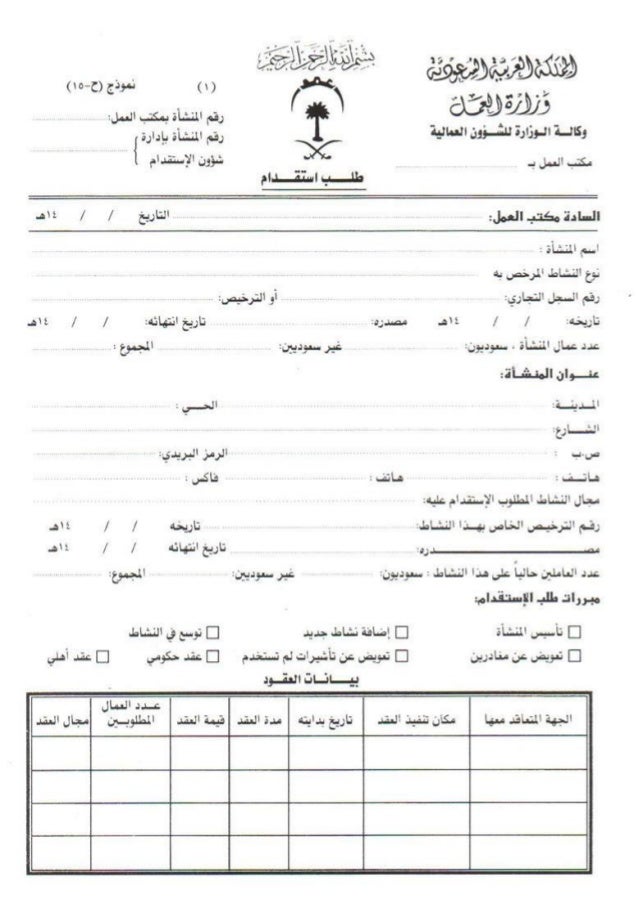 بسم الله الرحمن الرحيم
المملكة العربية السعودية
وزارة العمل
وكالة الوزارة للشؤون العمالية
مكتب العمل بـ
(١) نموذج (ح-١٥)
رقم المنشأة بمكتب العمل:
رقم المنشأة بإدارة
شؤون الإستقدام
طلب استقدام
السادة مكتب العمل: التاريخ / / ١٤هـ
اسم المنشأة :
نوع النشاط المرخص به
رقم السجل التجاري: أو الترخيص:
تاريخه: / / ١٤هـ مصدره: تاريخ انتهائه: / / ١٤هـ
عدد عمال المنشأة ، سعوديون: غير سعوديين: المجموع :
عنوان المنشأة:
المدينة: الحي :
الشارع:
ص.ب : الرمز البريدي:
هاتف : هاتف : فاكس :
مجال النشاط المطلوب الإستقدام عليه:
رقم الترخيص الخاص بهذا النشاط: تاريخه / / ١٤هـ
مصدره: تاريخ انتهائه / / ١٤هـ
عدد العاملين حالياً على هذا النشاط : سعوديون: غير سعوديين: المجموع:
مبررات طلب الإستقدام:
تأسيس المنشأة إضافة نشاط جديد توسع في النشاط
تعويض عن مغادرين تعويض عن تأشيرات لم تستخدم عقد حكومي عقد أهلي
بيانات العقود
الجهة المتعاقد معها مكان تنفيذ العقد تاريخ بدايته مدة العقد قيمة العقد عدد العمال المطلوبين مجال العقد